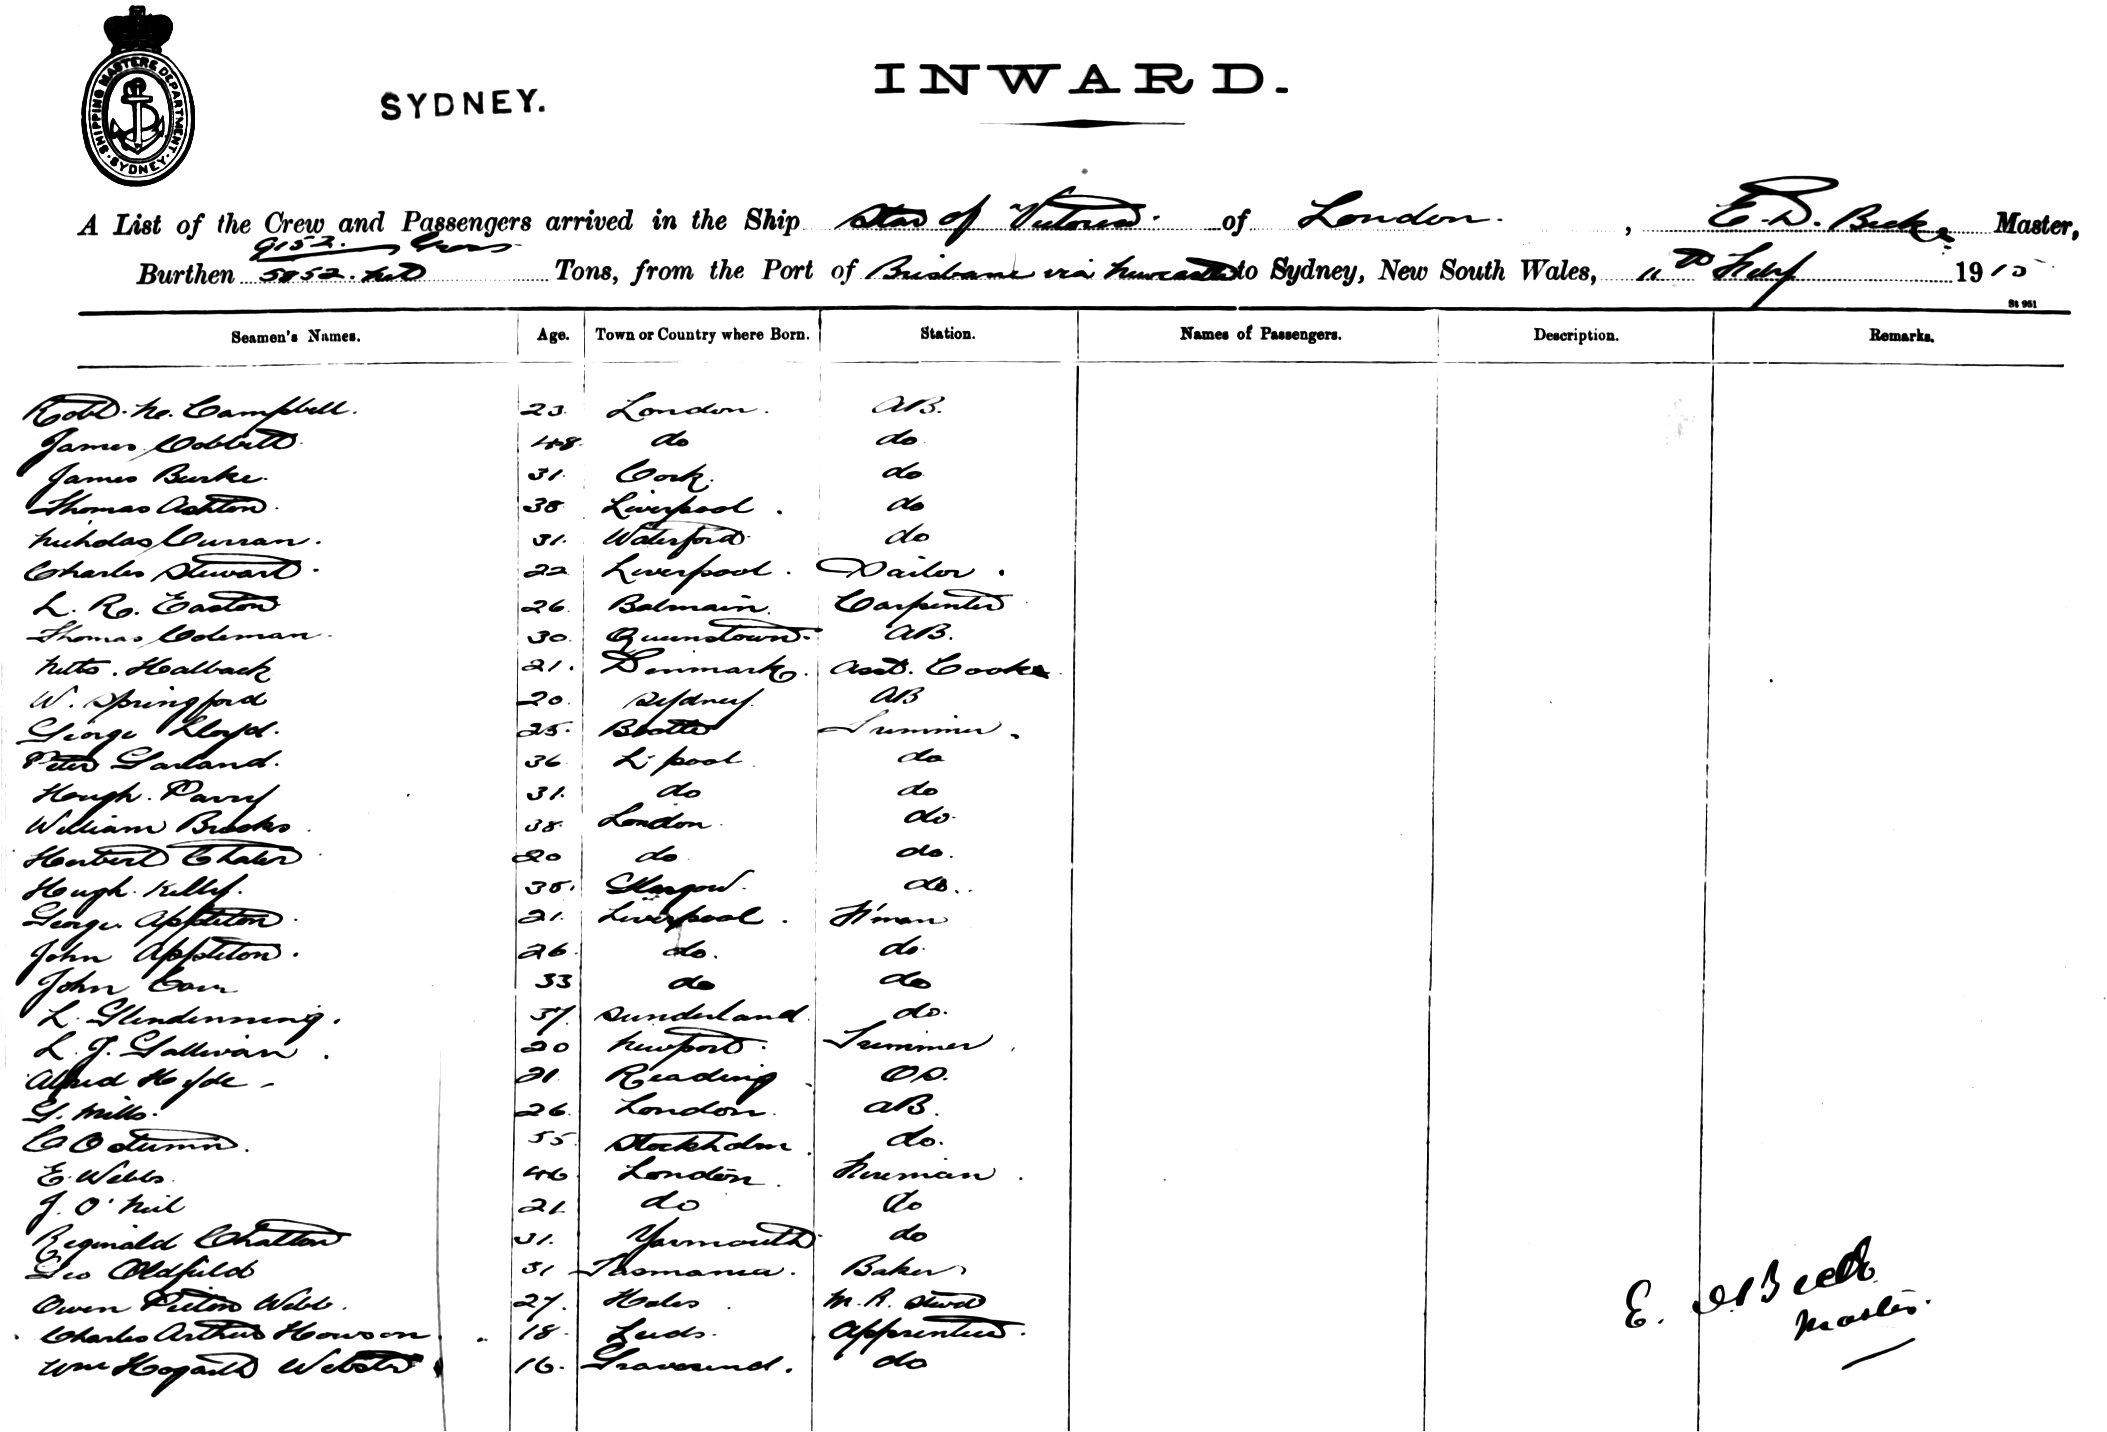 SHIPPING MASTERS DEPARTMENT. SYDNEY.
SYDNEY.
INWARD.
A List of the Crew and Passengers arrived in the Ship Star of Victoria. of London. , E. D. Beek Master,
9152. Gross
Burthen 5852. net Tons, from the Port of Brisbane via Newcastle to Sydney, New South Wales, 11th Feby 1915
St 951
Seamen's Names. Age. Town or Country where Born. Station. Names of Passengers. Description. Remarks.
Robt. Campbell. 23. London. AB.
James Cobbett 48. do do
James Burke. 31. Cork. do
Thomas Ashton. 38 Liverpool. do
Nicholas Curran. 31. Waterford do
Charles Stewart. 22 Liverpool. Sailor.
L. R. Easton 26 Balmain. Carpenter
Thomas Coleman. 30. Queenstown. AB.
Halback 21. Denmark. Asst. Cook
W. Springford 20. Sydney. AB
George Lloyd. 25. Bootle Trimmer.
Peter Garland. 36 L'pool. do
Hough. Parry 31. do do
William Brooks. 38. London. do.
Herbert Chater 20 do do.
Hugh. Kelly. 35. Glasgow. do.
George Appleton. 21. Liverpool. F'man
John Appleton. 26. do. do.
John Carr 33 do do
L. Glendenning. 37. Sunderland do.
L. J. Gallivan. 20 Newport. Trimmer.
Alfred Hyde 21 Reading. OS.
G. Mills. 26. London. AB.
C 55 Stockholm. do.
E. Webb. 46. London. Fireman.
J. O'Neil 21. do do
Reginald Chatton 31. Yarmouth do
Geo Oldfield 31 Tasmania. Baker
Owen Picton Webb. 27. M. R. Stwd
Charles Arthur Howson 18. Leeds. Apprentice.
Wm Hogarth Webster 16. Gravesend. do
E. D. Beek
Master.